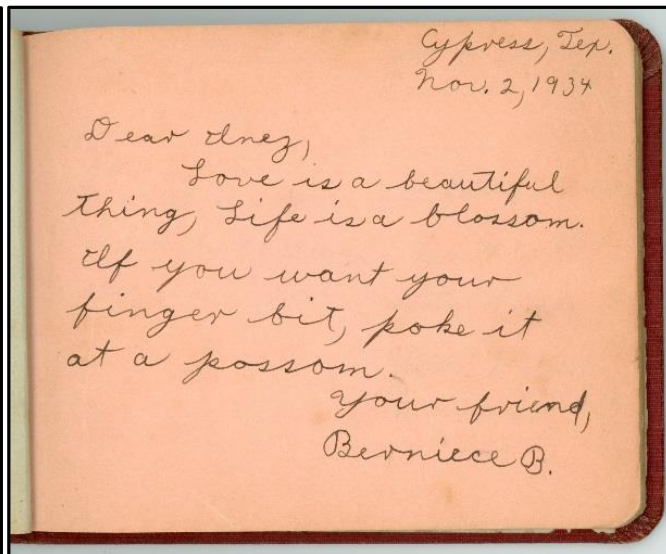 Cypress, Tex.
Nov. 2, 1934
Dear Inez,
Love is a beautiful
thing, Life is a blossom.
If you want your
finger bit, poke it
at a possom.
Your friend,
Berniece B.